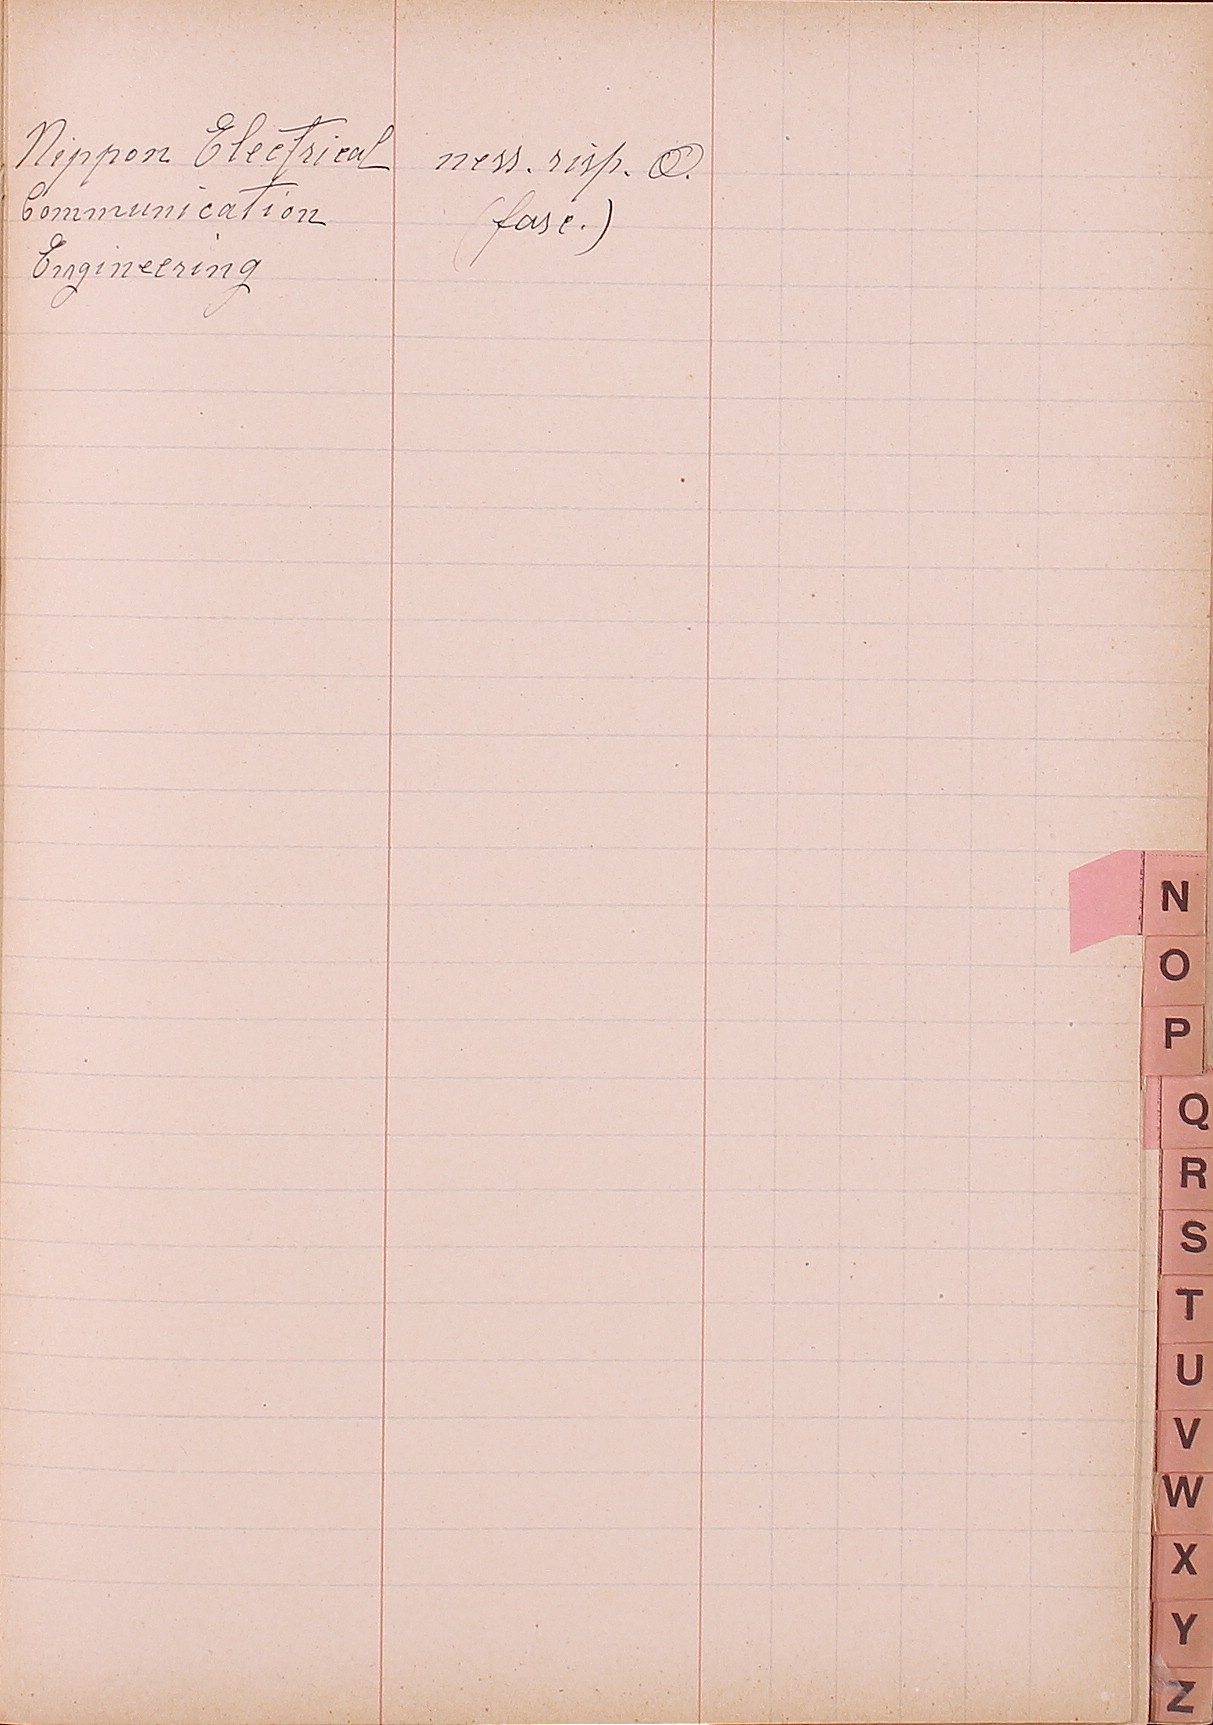 Nippon Electrical ness. risp. O.
Communication (fasc.)
Engineering
N
O
P
Q
R
S
T
U
V
W
X
Y
Z